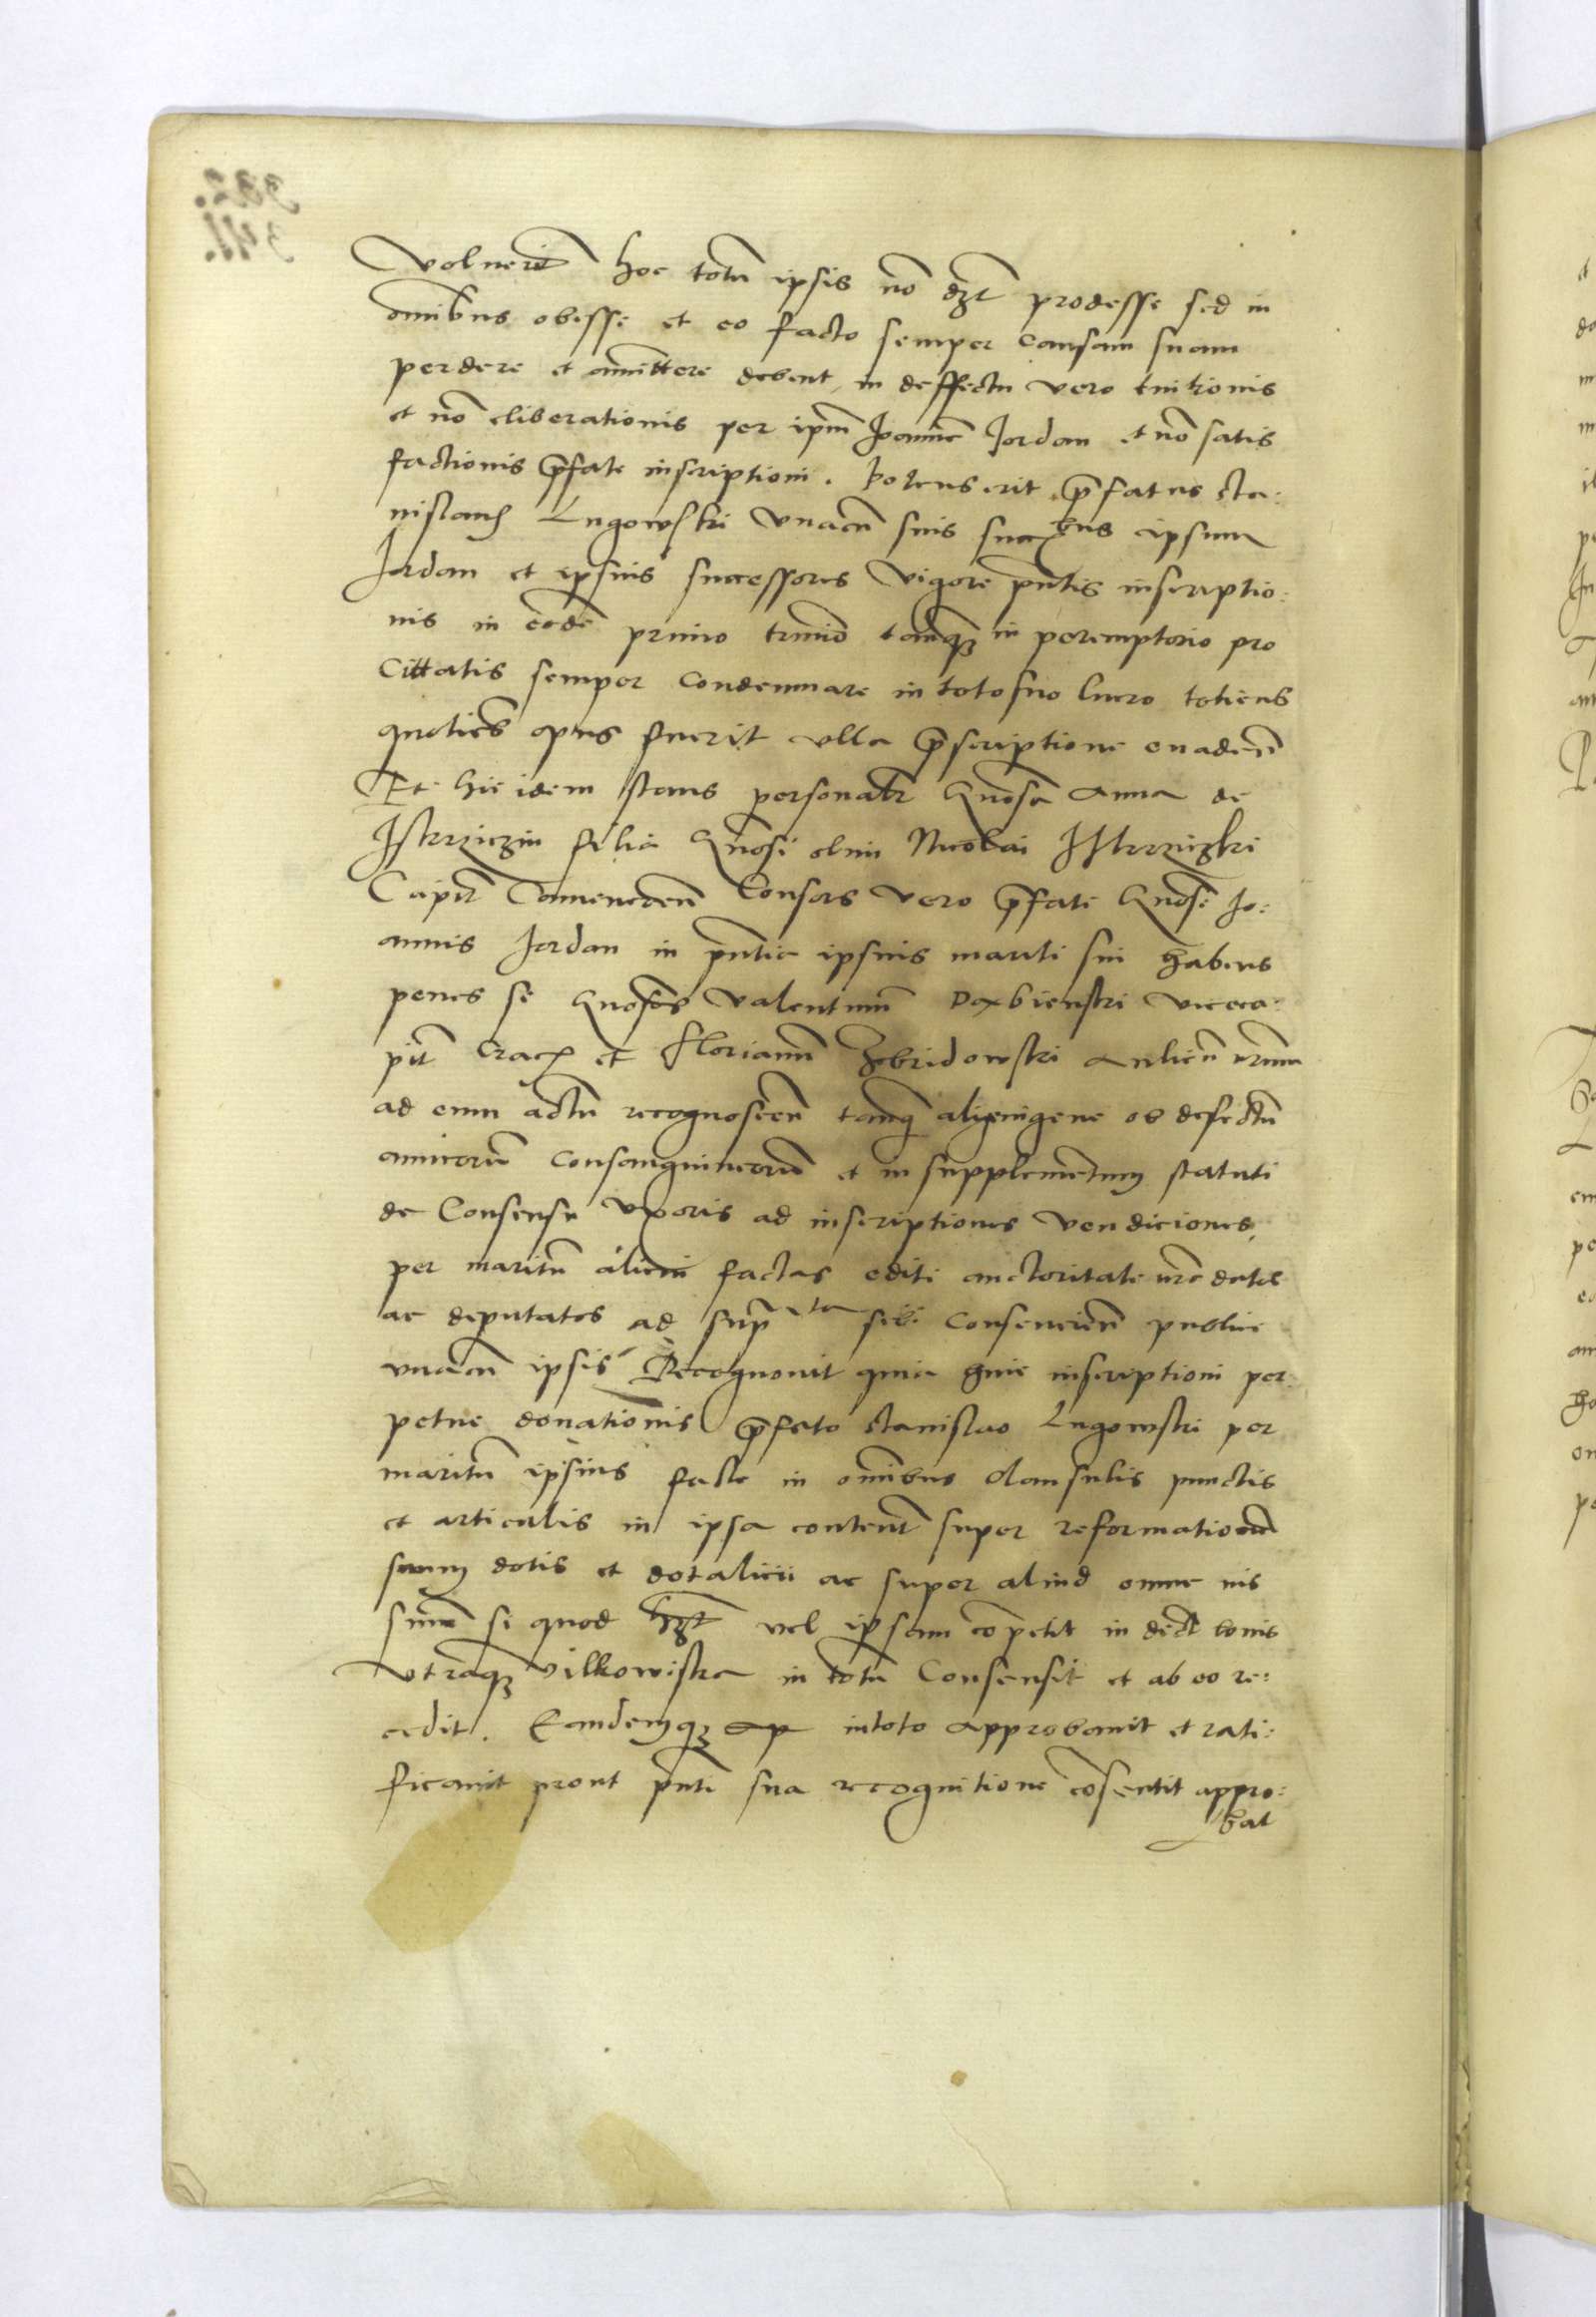 voluerit hoc totu ipsis no dzt prodesse sed in
omibus obesse et eo facto semper causam suam
perdere et amittere debent in deffectu vero tuitionis
et no eliberationis per ipm Joanne Jordan et no satis
factionis pfate inscriptioni. Potens erit pfatus Sta:
nislaus Lugowski vnacu suis succbus ipsum
Jordan et ipsius successores vigore pntis inscriptio:
nis in eode primo trmio tanqz in peremptorio pro
Cittatis semper condemnare in toto suo lucro totiens
quoties opus fuerit ulla pscriptione euaden
Et hic idem stans personalr Gnosa Anna de
filia Gnosi olim Nicolai
Capit Consors vero pfate Gnose Jo:
annis Jordan in pntia ipsius mariti sui habens
penes se Gnosos Valentinu Viceca:
pit Crac et Florianu Zebridowski Aulicu nrum
ad eum actu recognoscen tanq aligenigene ob defectu
amicoru consanguineoru et in supplementum statuti
de Consensu vxoris ad inscriptiones vendiciones
per maritu alicui factas editi auctoritate nre datos
ac deputatos ad supta sibi consencien publice
vnacu ipsis Recognouit quia huic inscriptioni per:
petue donationis pfato Stanislao Lugowski per
maritu ipsius facte in omibus clausulis punctis
et articulis in ipsa content super reformatione
suam dotis et dotalicii ac super aliud omne ius
suum si quod hzt vel ipsam copetit in dict bonis
vtraqz Vilkowiska in totu Consensit et ab eo re:
cedit. Eandemqz ap intoto approbauit et rati:
ficauit prout pnti sua recognitione cosentit appro:
bat